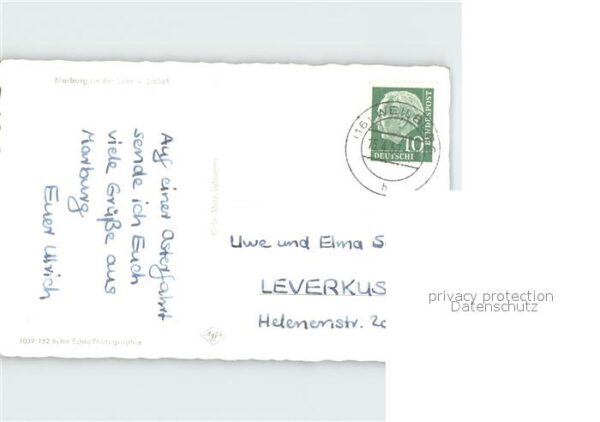 Marburg an der Lahn - Schloß
Auf einer Osterfahrt
sende ich Euch
viele Grüße aus
Marburg
Euer Ullrich
(16) WEIL
h
10
DEUTSCHE
BUNDESPOST
Uwe und Elma S
LEVERKUS
Helenenstr. 20
Agfa
Echte Photographie
privacy protection
Datenschutz